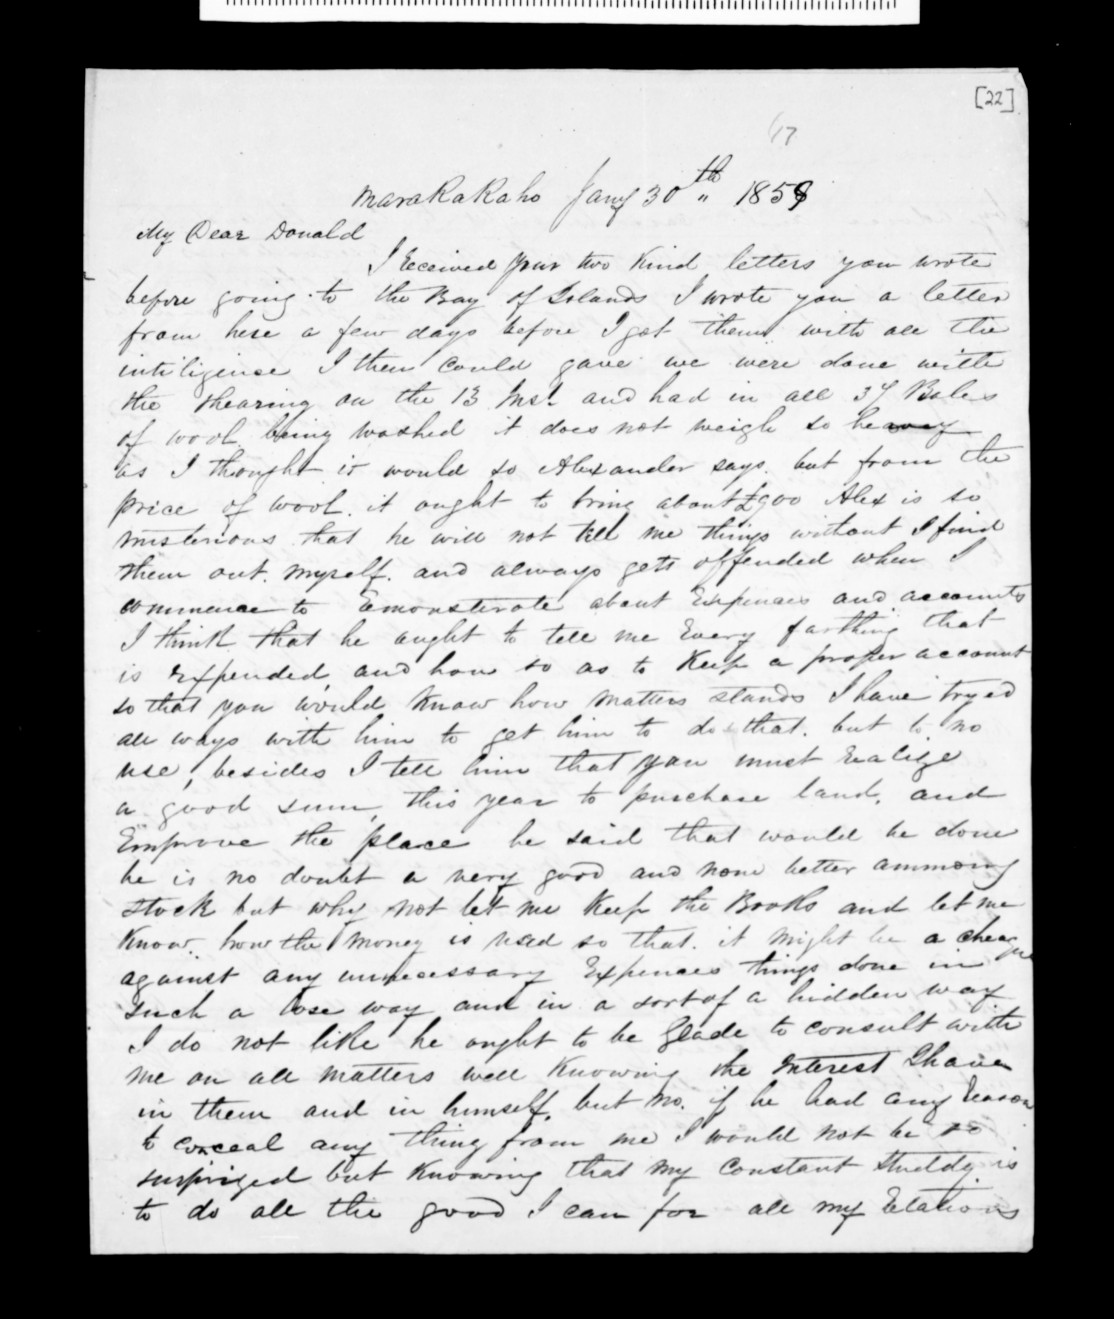 [22]
17
Marakakaho Jany 30th " 1858
My Dear Donald
I Received your two Kind letters you wrote
before going to the Bay of Islands I wrote you a letter
from here a few days before I got them with all the
intiliginse I then could gave we were done with
the shearing on the 13 Inst. and had in all 37 Bales
of wool. being washed it does not weigh so heavy
as I thought it would so Alexander says. but from the
price of wool. it ought to bring about £900 Alex is so
misterious that he will not tell me things without I find
them out. myself. and always gets offended when I
commence to Emonstrate about Expences and accounts
I think that he aught to tell me Every farthing that
is Expended, and how so as to Keep a proper account
so that you would know how matters stands I have tryed
all ways with him to get him to do that. but to no
use, besides I tell him that you must Ealize
a good sum, this year to purchase land, and
Emprove the place he said that would be done
he is no doubt a very good and none better ammong
stock but why not let me Keep the Books and let me
Know how the money is used so that. it might be a cheaque
against any unnecessary Expences things done in
such a lose way and in a sort of a hidden way
I do not like he ought to be glade to consult with
me on all matters well Knowing the Interest I have
in them and in himself. but no. if he had any Eason
to conceal any thing from me I would not be so
surprized but Knowing that my constant studdy is
to do all the good I can for all my Elations